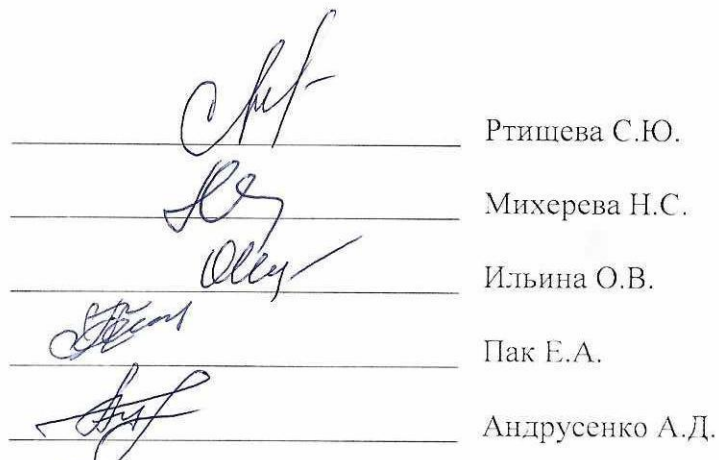 Ртищева С.Ю.
Михерева Н.С.
Ильина О.В.
Пак Е.А.
Андрусенко А.Д.